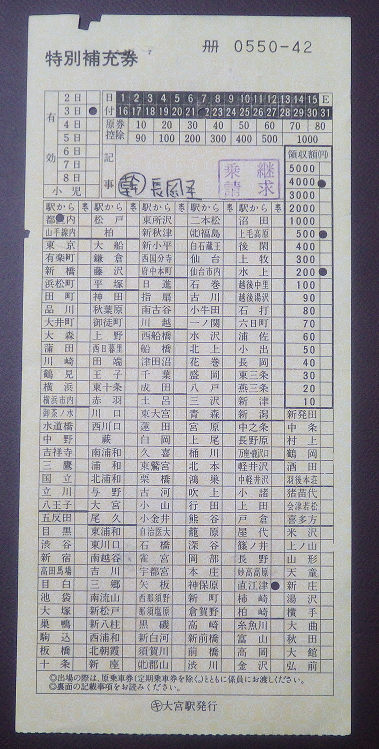 特別補充券
冊 0550-42
有効
2日
3日
4日
5日
6日
7日
8日
小児
日付
1 2 3 4 5 6 7 8 9 10 11 12 13 14 15 E
16 17 18 19 20 21 22 23 24 25 26 27 28 29 30 31
原券控除
10 20 30 40 50 60 70 80
90 100 200 300 400 500 1000
記事
幹
乗継請求
領収額(円)
5000
4000
3000
駅から 駅から 駅から 駅から 駅から 2000
都区内 松戸 東所沢 二本松 沼田 1000
山手線内 柏 新秋津 ㈶福島 上毛高原 500
東京 大船 新小平 白石蔵王 後閑 400
有楽町 鎌倉 西国分寺 仙台 上牧 300
新橋 藤沢 府中本町 仙台市内 水上 200
浜松町 平塚 日進 石巻 越後中里 100
田町 神田 指扇 古川 越後湯沢 90
品川 秋葉原 南古谷 小牛田 石打 80
大井町 御徒町 川越 一ノ関 六日町 70
大森 上野 西船橋 水沢 浦佐 60
蒲田 西日暮里 船橋 北上 小出 50
川崎 田端 津田沼 花巻 長岡 40
鶴見 王子 千葉 盛岡 東三条 30
横浜 東十条 成田 八戸 燕三条 20
横浜市内 赤羽 土呂 三沢 新津 10
御茶ノ水 川口 東大宮 青森 新潟 新発田
水道橋 西川口 蓮田 宮原 中之条 中条
中野 蕨 白岡 上尾 長野原 村上
吉祥寺 南浦和 久喜 桶川 万座・鹿沢口 鶴岡
三鷹 浦和 東鷲宮 北本 軽井沢 酒田
国立 北浦和 栗橋 鴻巣 中軽井沢 羽後本荘
立川 与野 古河 吹上 小諸 猪苗代
八王子 大宮 小山 行田 上田 会津若松
五反田 尾久 小金井 熊谷 戸倉 喜多方
目黒 東浦和 自治医大 籠原 屋代 米沢
渋谷 東川口 石橋 深谷 篠ノ井 上ノ山
新宿 南越谷 雀宮 岡部 長野 山形
高田馬場 吉川 宇都宮 本庄 妙高高原 天童
目白 三郷 矢板 神保原 直江津 新庄
池袋 南流山 西那須野 新町 柿崎 湯沢
大塚 新松戸 那須塩原 倉賀野 柏崎 横手
巣鴨 新八柱 黒磯 高崎 糸魚川 大曲
駒込 西浦和 新白河 新前橋 富山 秋田
板橋 北朝霞 須賀川 前橋 高岡 大館
十条 新座 北郡山 渋川 金沢 弘前
◎出場の際は、原乗車券(定期乗車券を除く。)とともに係員にお渡しください。
◎裏面の記載事項をお読みください。
大宮駅発行